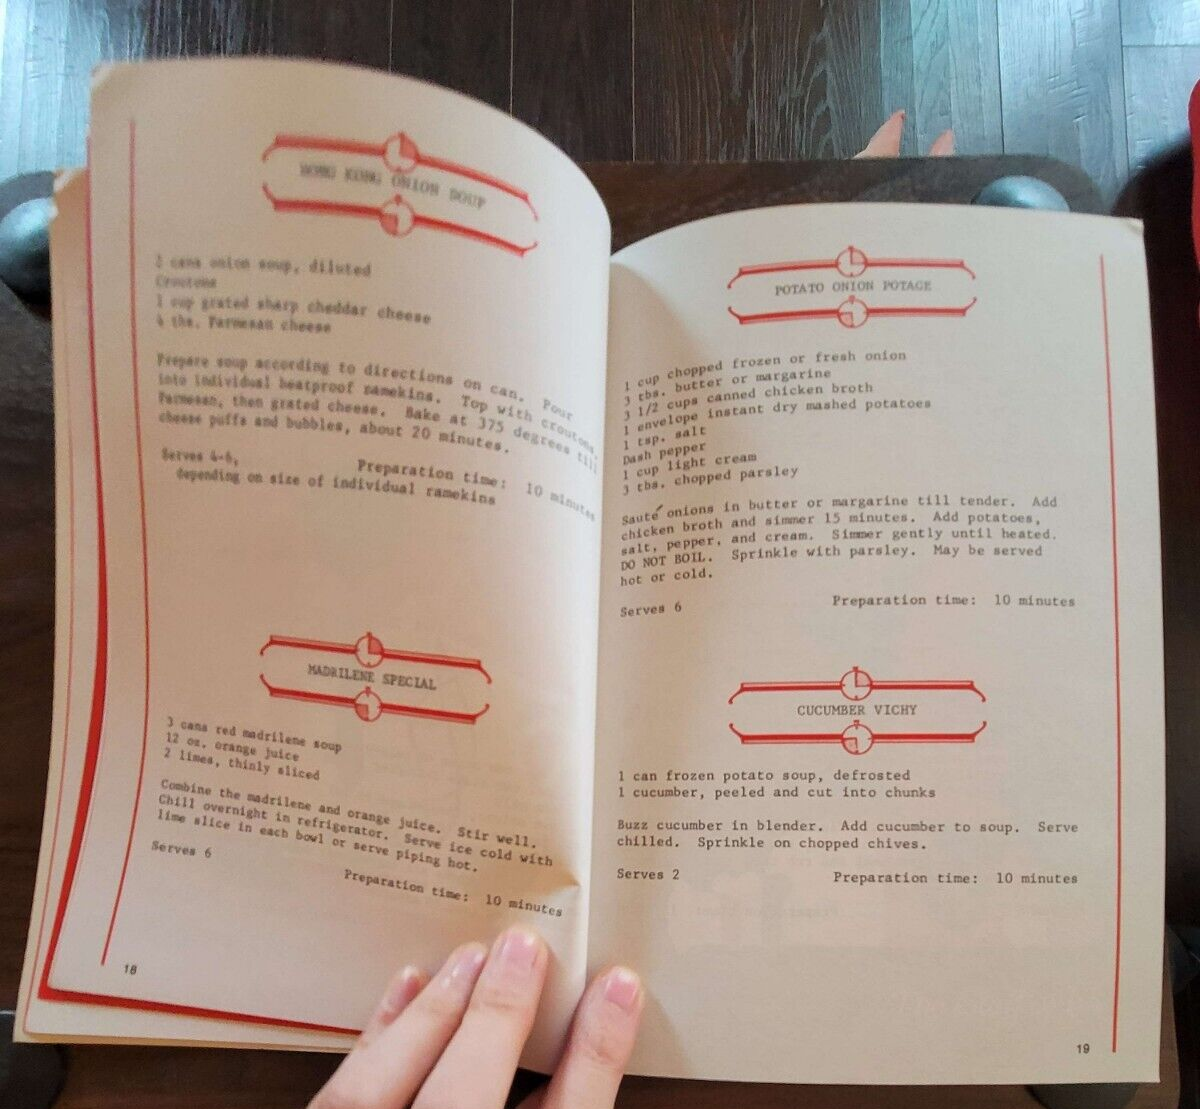 HONG KONG ONION SOUP
2 cans onion soup, diluted
Croutons
1 cup grated sharp cheddar cheese
4 tbs. Parmesan cheese
Prepare soup according to directions on can. Pour
into individual heatproof ramekins. Top with croutons,
Parmesan, then grated cheese. Bake at 375 degrees till
cheese puffs and bubbles, about 20 minutes.
Serves 4-6,
depending on size of individual ramekins
Preparation time: 10 minutes
MADRILENE SPECIAL
3 cans red madrilene soup
12 oz. orange juice
2 limes, thinly sliced
Combine the madrilene and orange juice. Stir well.
Chill overnight in refrigerator. Serve ice cold with
lime slice in each bowl or serve piping hot.
Serves 6
Preparation time: 10 minutes
18
POTATO ONION POTAGE
1 cup chopped frozen or fresh onion
3 tbs. butter or margarine
3 1/2 cups canned chicken broth
1 envelope instant dry mashed potatoes
1 tsp. salt
Dash pepper
1 cup light cream
3 tbs. chopped parsley
Sauté onions in butter or margarine till tender. Add
chicken broth and simmer 15 minutes. Add potatoes,
salt, pepper, and cream. Simmer gently until heated.
DO NOT BOIL. Sprinkle with parsley. May be served
hot or cold.
Serves 6 Preparation time: 10 minutes
CUCUMBER VICHY
1 can frozen potato soup, defrosted
1 cucumber, peeled and cut into chunks
Buzz cucumber in blender. Add cucumber to soup. Serve
chilled. Sprinkle on chopped chives.
Serves 2 Preparation time: 10 minutes
19